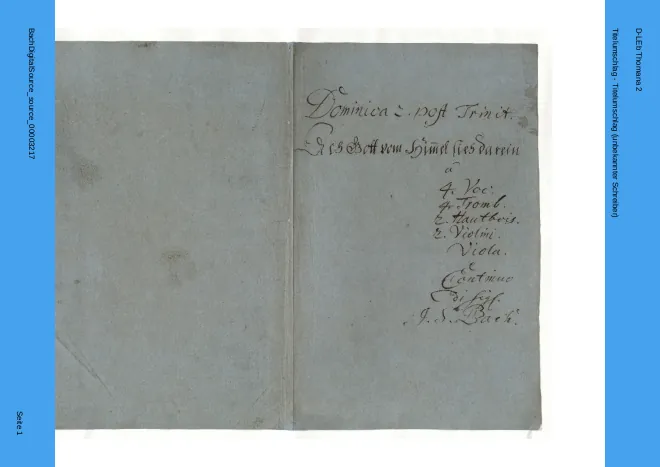 D-LEb Thomana 2
Titelumschlag - Titelumschlag (unbekannter Schreiber)
Dominica 2. post Trinit.
Ach Gott vom Him̅el sieh darein
a
4. Voc.
4. Tromb.
2. Hautbois.
2. Violini.
Viola.
e
Continuo
di Sig.
J. S. Bach.
BachDigitalSource_source_00003217
Seite 1